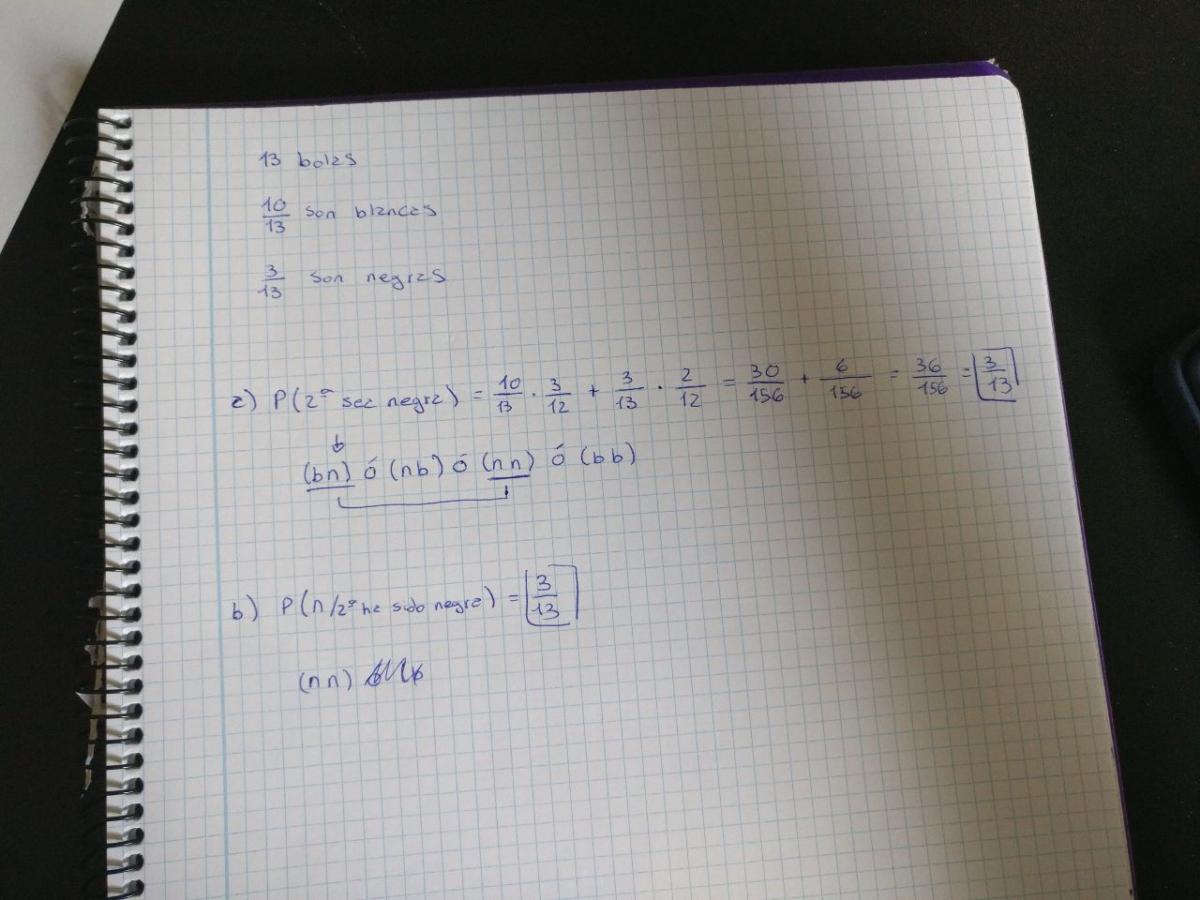 13 bolas
10/13 son blancas
3/13 son negras
a) P(2ª sea negra) = 10/13 · 3/12 + 3/13 · 2/12 = 30/156 + 6/156 = 36/156 = 3/13
(bn) ó (nb) ó (nn) ó (bb)
b) P(n/2ª ha sido negra) = 3/13
(nn)